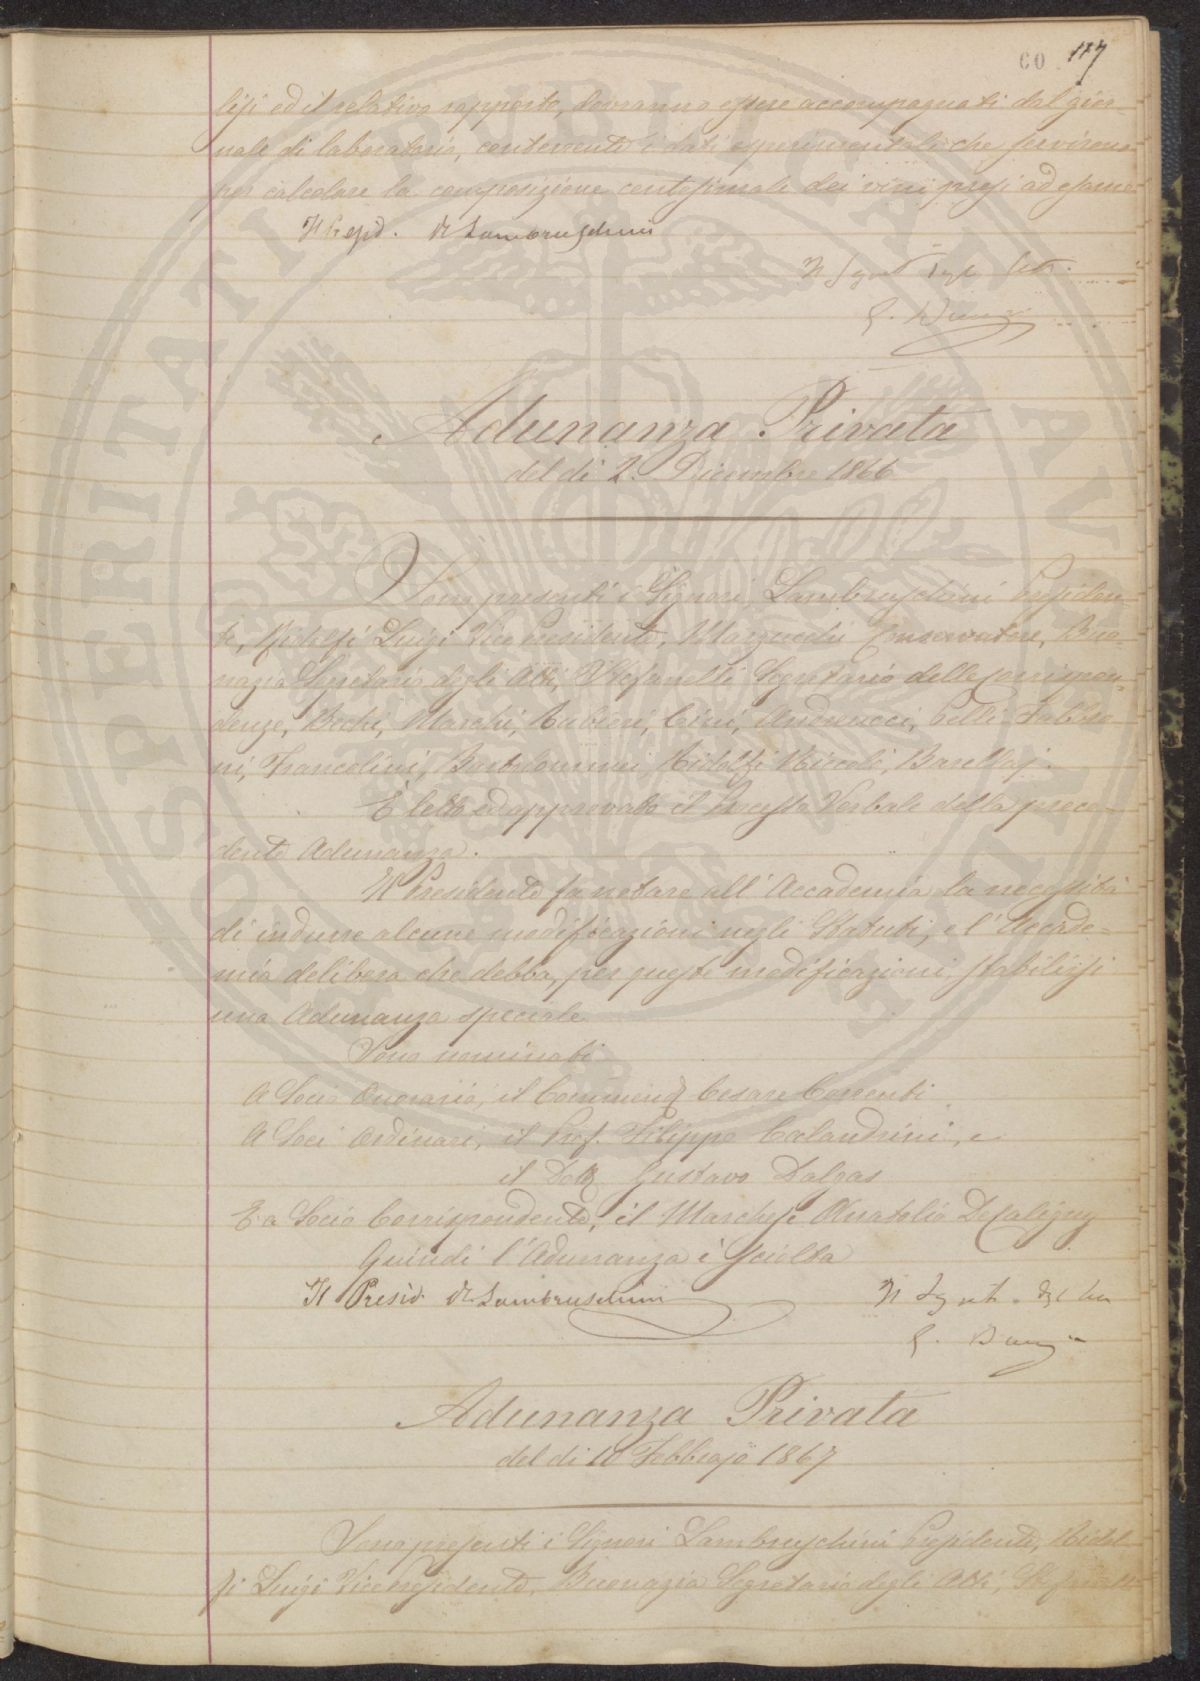 60 117
lisi ed il relativo rapporto, dovranno essere accompagnati dal gior-
nale di laboratorio, contenente i dati esperimentali che servirono
per calcolare la composizione centesimale dei vini presi ad esame
Il Presid. R Lambruschini
Il Segret degl Atti
Adunanza Privata
del di 2. Dicembre 1866
Sono presenti i Signori, Lambruschini Presiden-
te, Ridolfi Luigi Vice Presidente, Marzucchi Conservatore, Buo-
nazia Segretario degli Atti, Stefanelli Segretario delle corrispon-
denze, Bechi, Marchi, Rubieri, Cini, Andreucci, Pelli Fabbro-
ni, Francolini, Bartolommei Ridolfi Niccolò, Barellaj.
È letto ed approvato il Processo Verbale della prece-
dente Adunanza.
Il Presidente fa notare all'Accademia la necessità
di indurre alcune modificazioni negli Statuti, e l'Accade-
mia delibera che debba, per queste modificazioni, stabilirsi
una Adunanza speciale
Sono nominati
A Socio Onorario, il Commend Cesare Correnti
A Soci Ordinari, il Prof. Filippo Calandrini, e
il Dott Gustavo Dalgas
E a Socio Corrispondente, il Marchese Anatolio De Caligny
Quindi l'Adunanza è sciolta
Il Presid. R Lambruschini Il Segret. degl Atti
Adunanza Privata
del di 10 Febbrajo 1867
Sono presenti i Signori Lambruschini Presidente, Ridol-
fi Luigi Vicepresidente, Buonazia Segretario degli Atti, Stefanelli
PROSPERITATI PUBLICAE AVGENDAE